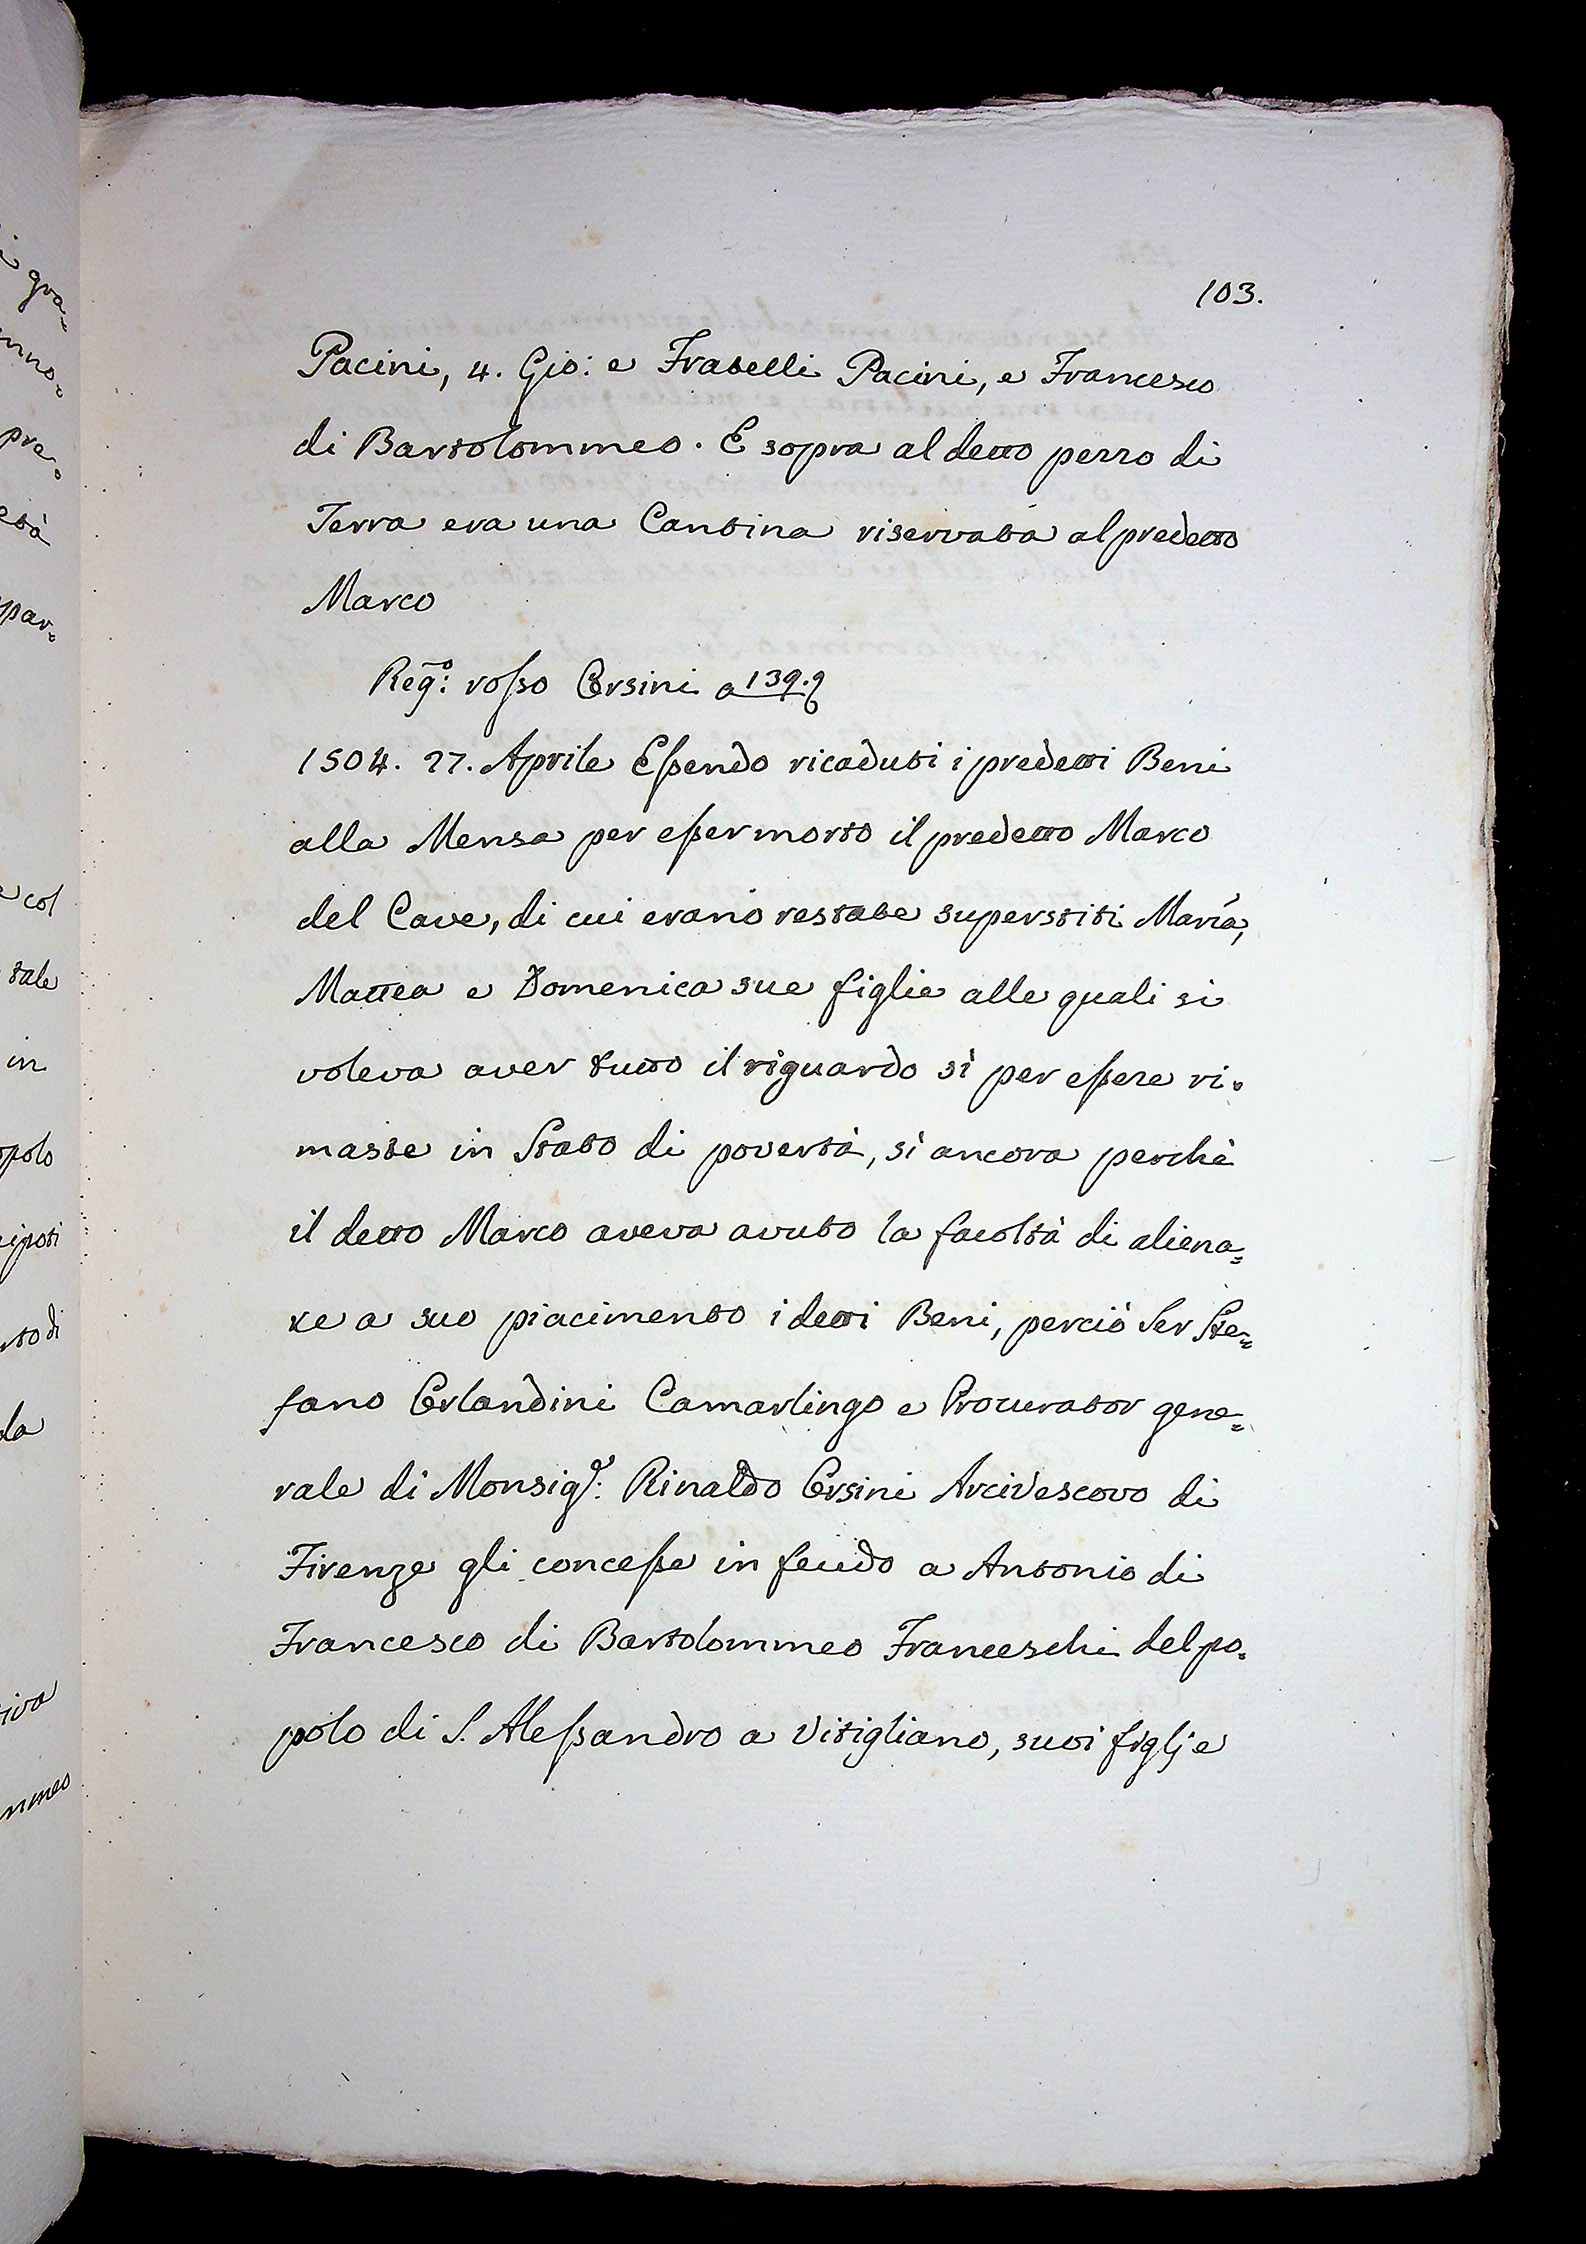 103.
Pacini, 4. Gio: e Fratelli Pacini, e Francesco
di Bartolommeo. E sopra al detto pezzo di
Terra era una Cantina riservata al predetto
Marco
Reg.º: rosso Orsini a 139.
1504. 27. Aprile Essendo ricaduti i predetti Beni
alla Mensa per esser morto il predetto Marco
del Cave, di cui erano restate superstiti Maria,
Mattea e Domenica sue figlie alle quali si
voleva aver tutto il riguardo sì per essere ri=
maste in Stato di povertà, sì ancora perchè
il detto Marco aveva avuto la facoltà di aliena=
re a suo piacimento i detti Beni, perciò Ser Ste=
fano Orlandini Camarlingo e Procurator gene=
rale di Monsig.r: Rinaldo Orsini Arcivescovo di
Firenze gli concesse in feudo a Antonio di
Francesco di Bartolommeo Franceschi del po=
polo di S. Alessandro a Vitigliano, suoi figlj e
gra=
pre=
età
par=
e col
tale
in
da